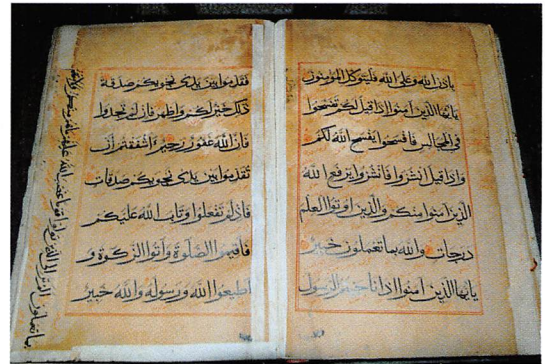 باذن الله وعلى الله فليتوكل المؤمنون
يايها الذين آمنوا اذا قيل لكم تفسحوا
في المجالس فافسحوا يفسح الله لكم
واذا قيل انشزوا فانشزوا يرفع الله
الذين آمنوا منكم والذين اوتوا العلم
درجات والله بما تعملون خبير
يايها الذين آمنوا اذا ناجيتم الرسول
فقدموا بين يدي نجويكم صدقة
ذلك خير لكم واطهر فان لم تجدوا
فان الله غفور رحيم ءاشفقتم ان
تقدموا بين يدي نجويكم صدقات
فاذ لم تفعلوا وتاب الله عليكم
فاقيموا الصلوة واتوا الزكوة و
اطيعوا الله ورسوله والله خبير
بما تعملون الم تر الى الذين تولوا قوما غضب الله عليهم ما هم منكم ولا منهم